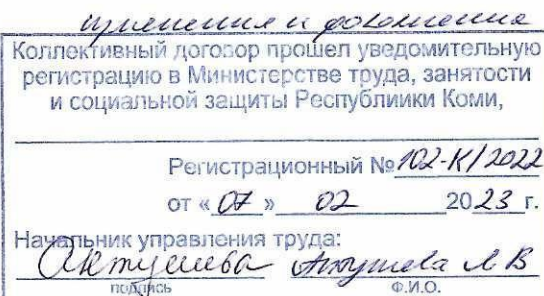 изменения и дополнения
Коллективный договор прошел уведомительную
регистрацию в Министерстве труда, занятости
и социальной защиты Республиики Коми,
Регистрационный № 102-К/2022
от « 07 » 02 2023 г.
Начальник управления труда:
подпись Ф.И.О.